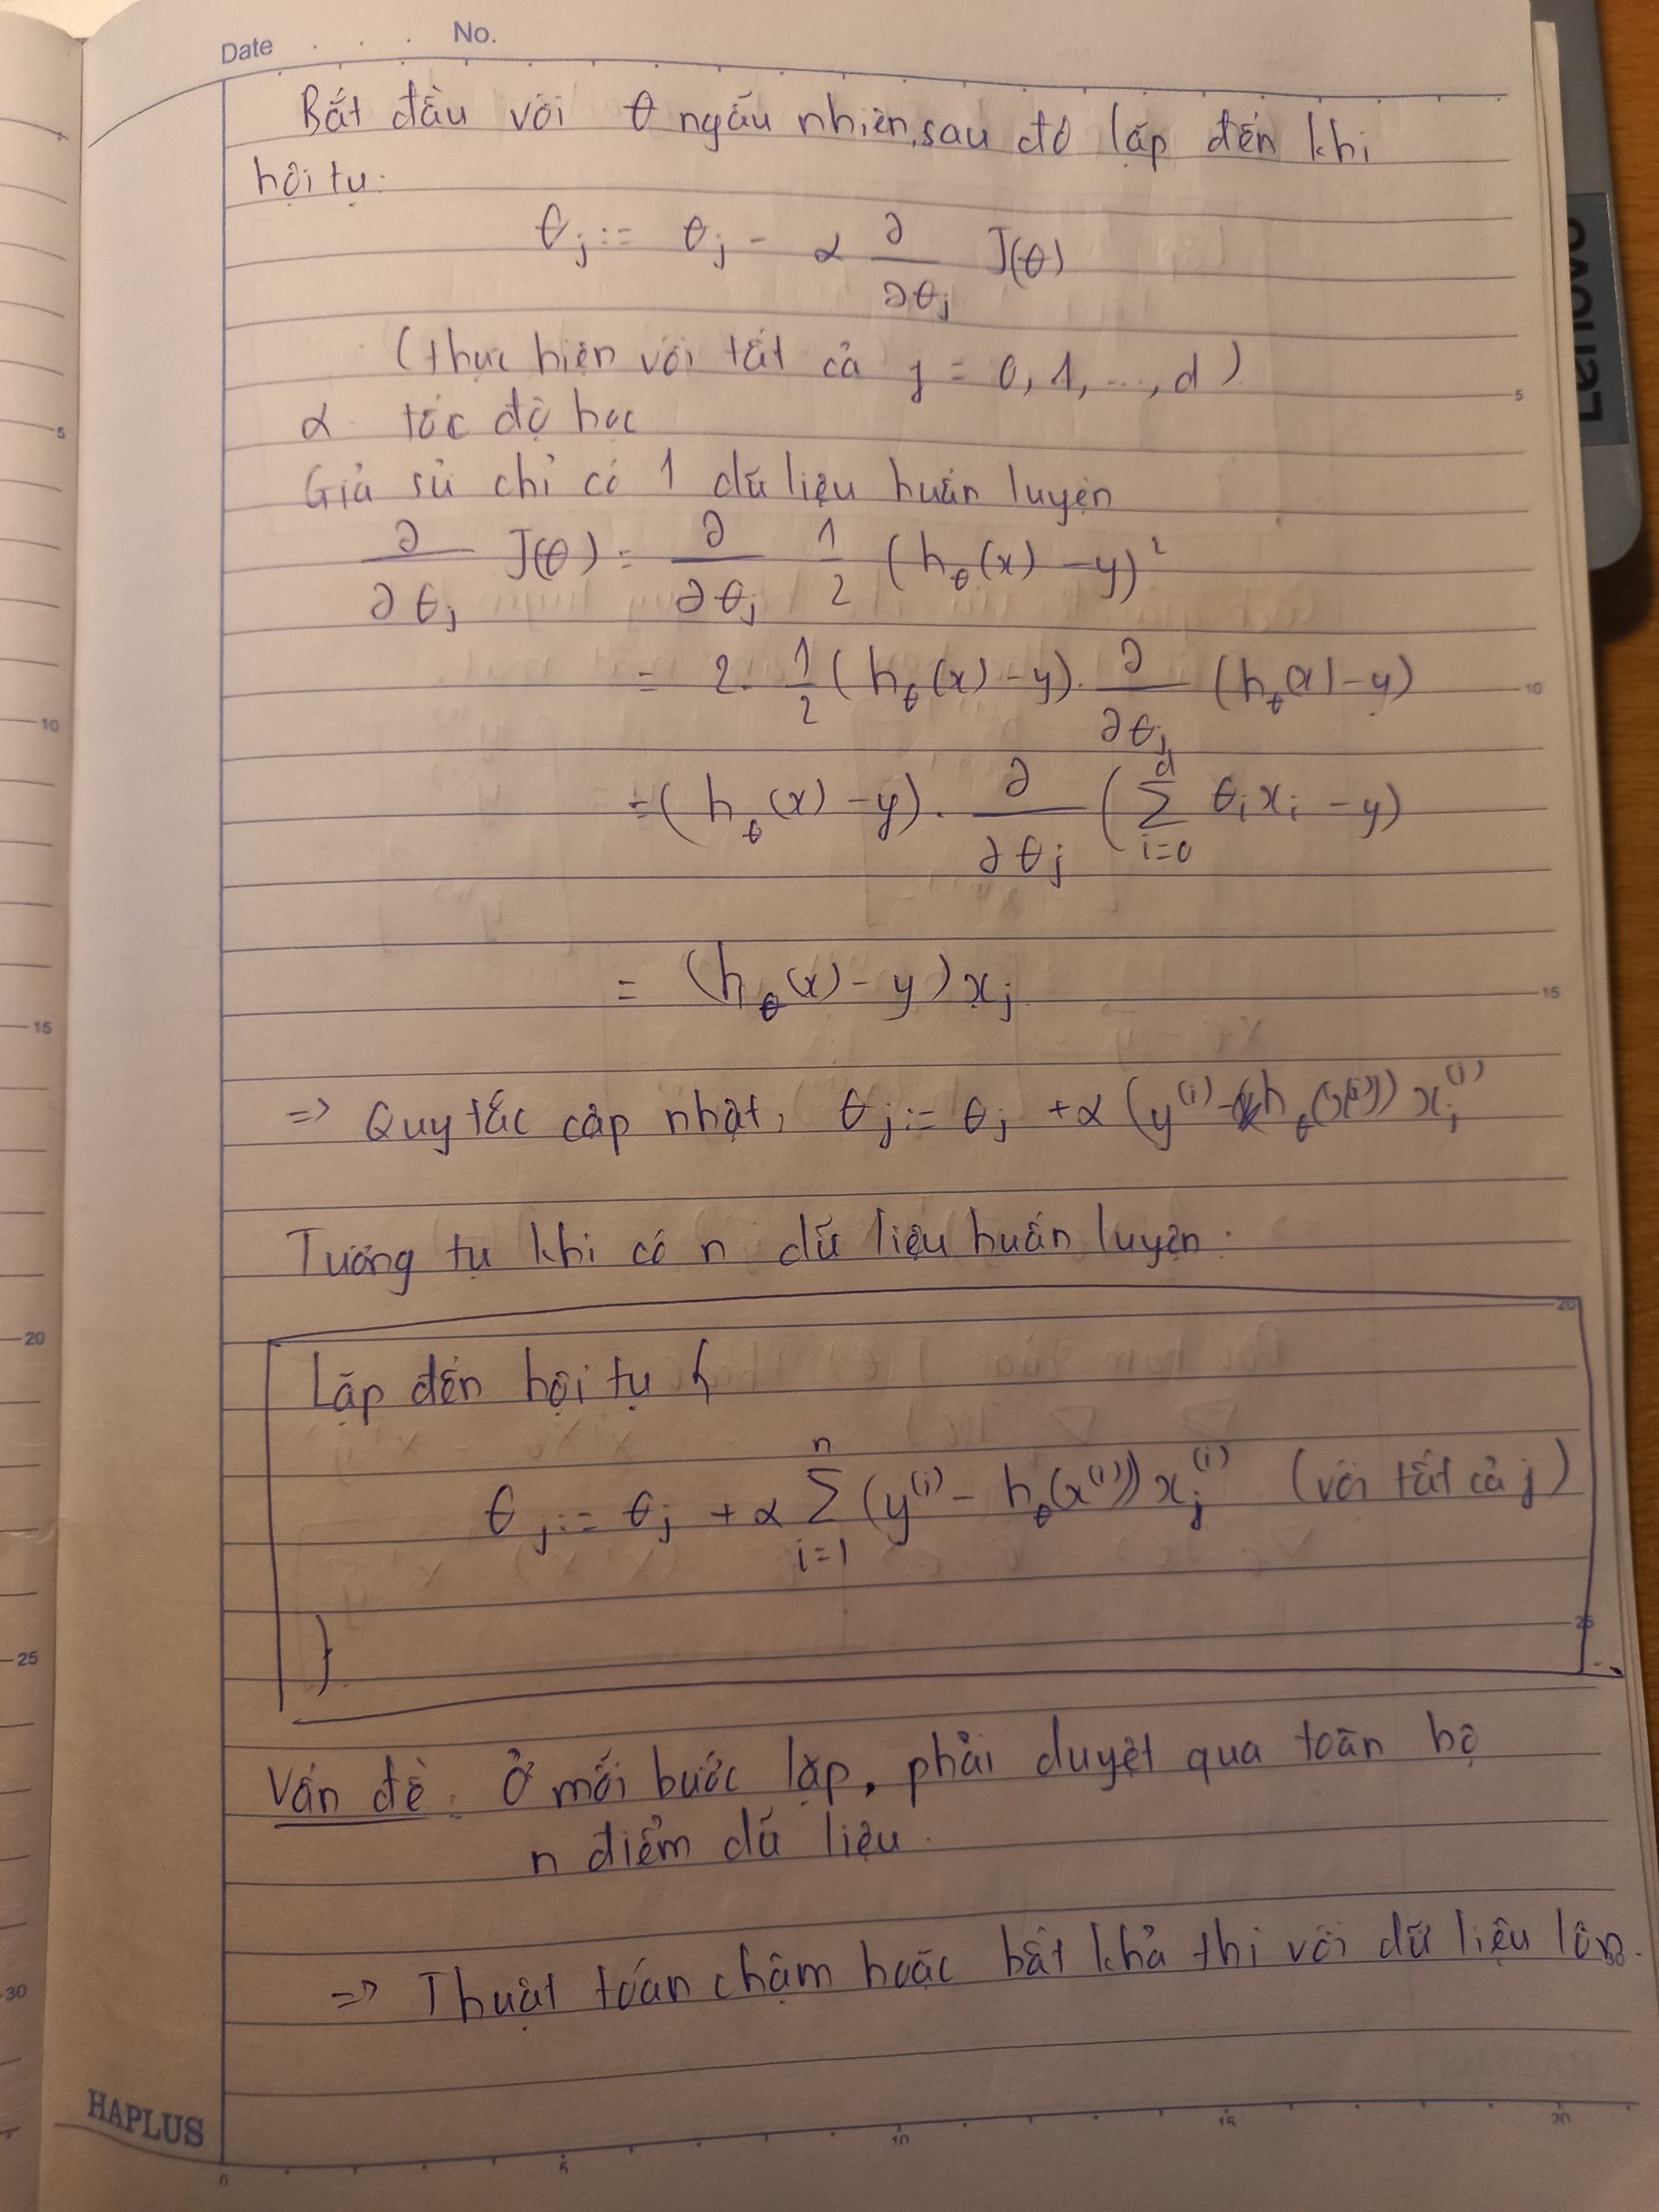 Date No.
Bắt đầu với θ ngẫu nhiên, sau đó lặp đến khi
hội tụ.
θⱼ := θⱼ - α ∂/∂θⱼ J(θ)
(thực hiện với tất cả j = 0, 1, ..., d)
α tốc độ học
Giả sử chỉ có 1 dữ liệu huấn luyện
∂/∂θⱼ J(θ) = ∂/∂θⱼ 1/2 (h_θ(x) - y)²
= 2. 1/2 (h_θ(x) - y). ∂/∂θⱼ (h_θ(x) - y)
= (h_θ(x) - y). ∂/∂θⱼ (∑_{i=0}^{d} θᵢxᵢ - y)
= (h_θ(x) - y)xⱼ
=> Quy tắc cập nhật, θⱼ := θⱼ + α (y⁽ⁱ⁾ - h_θ(x⁽ⁱ⁾)) xⱼ⁽ⁱ⁾
Tương tự khi có n dữ liệu huấn luyện.
Lặp đến hội tụ {
θⱼ := θⱼ + α ∑_{i=1}^{n} (y⁽ⁱ⁾ - h_θ(x⁽ⁱ⁾)) xⱼ⁽ⁱ⁾ (với tất cả j)
}
Vấn đề: Ở mỗi bước lặp, phải duyệt qua toàn bộ
n điểm dữ liệu.
=> Thuật toán chậm hoặc bất khả thi với dữ liệu lớn.
HAPLUS
Lenovo
5
10
15
20
25
30
5
10
15
20
25
30
0 5 10 15 20